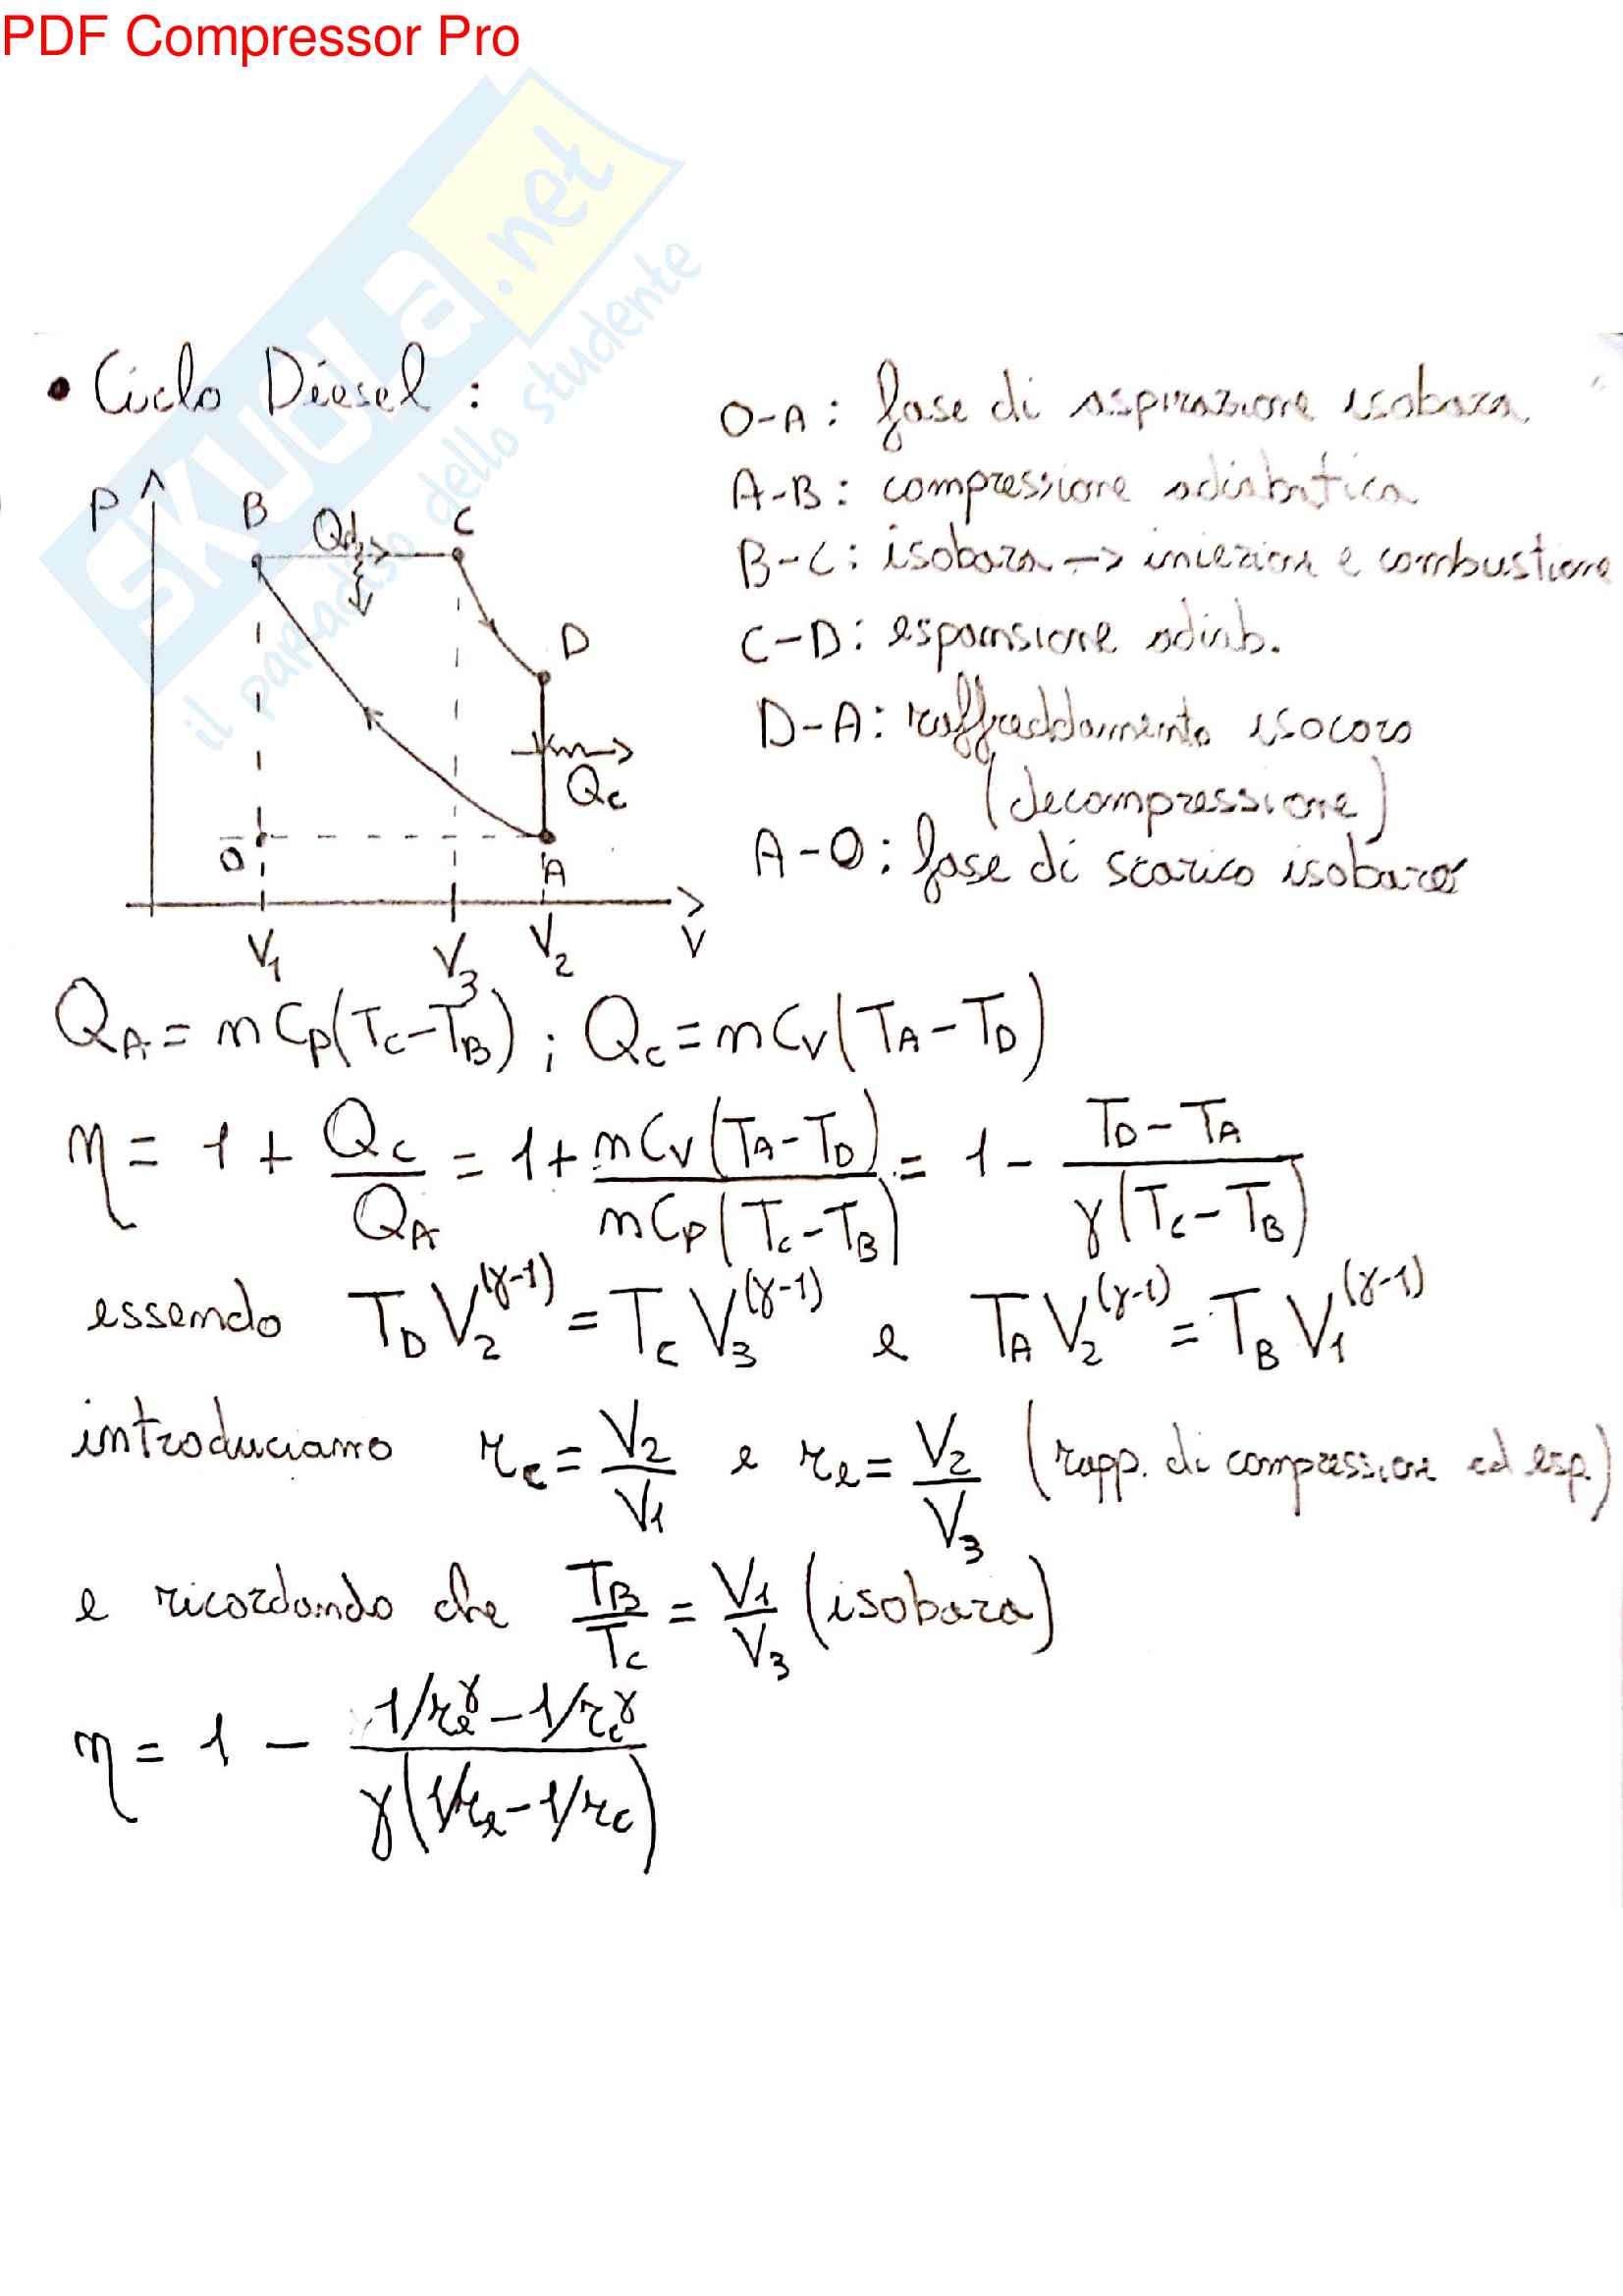 PDF Compressor Pro
SKUOLa.net
il paradiso dello studente
• Ciclo Diesel :
O-A : fase di aspirazione isobara
A-B : compressione adiabatica
B-C : isobara → iniezione e combustione
C-D : espansione adiab.
D-A : raffreddamento isocoro
(decompressione)
A-O : fase di scarico isobaro
P
B
C
D
Qc
O
A
V1
V3
V2
V
QA = nCp(TC-TB) ; Qc = nCv(TA-TD)
η = 1 + Qc/QA = 1 + nCv(TA-TD)/nCp(Tc-TB) = 1 - (TD-TA)/γ(Tc-TB)
essendo TD V2^(γ-1) = Tc V3^(γ-1) e TA V2^(γ-1) = TB V1^(γ-1)
introduciamo rc = V2/V1 e re = V2/V3 (rapp. di compressione ed esp.)
e ricordando che TB/Tc = V1/V3 (isobara)
η = 1 - (1/re^γ - 1/rc^γ)/γ(1/re - 1/rc)